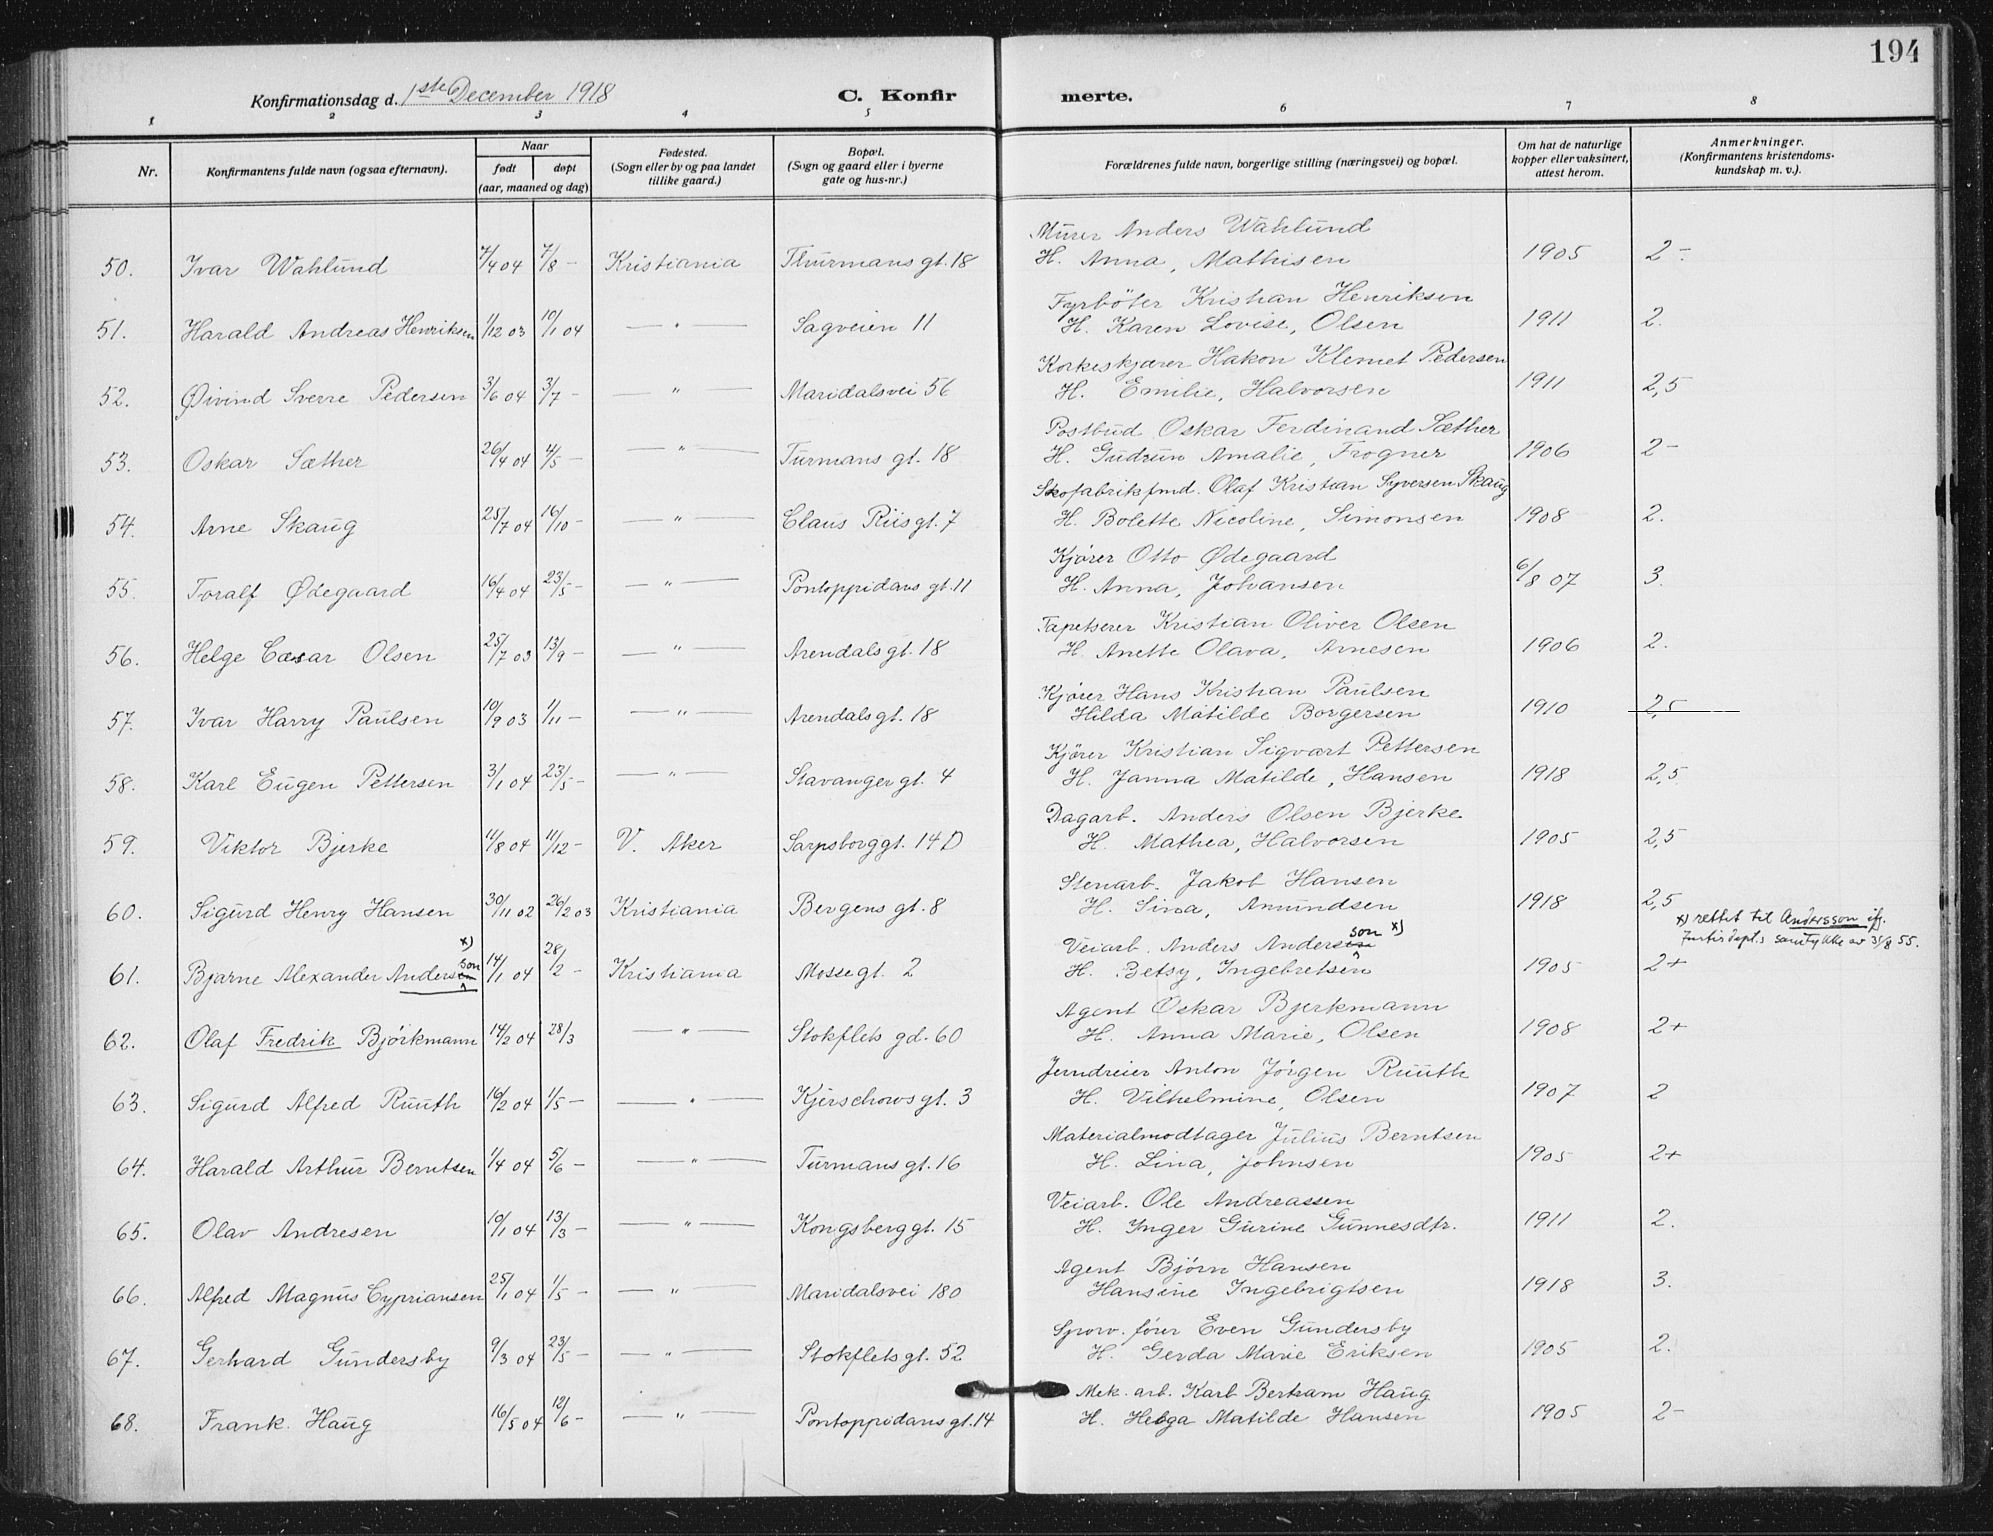 194
Konfirmationsdag d. 1ste December 1918 C. Konfir merte.
1 2 3 4 5 6 7 8
Nr. Konfirmantens fulde navn (ogsaa efternavn). Naar født døpt (aar, maaned og dag) Fødested. (Sogn eller by og paa landet tillike gaard.) Bopæl. (Sogn og gaard eller i byerne gate og hus-nr.) Forældrenes fulde navn, borgerlige stilling (næringsvei) og bopæl. Om hat de naturlige kopper eller vaksinert, attest herom. Anmerkninger. (Konfirmantens kristendoms-kundskap m. v.).
Murer Anders Wahlund
50. Ivar Wahlund 7/4 04 7/8 – Kristiania Thurmans gt. 18 H. Anna, Mathisen 1905 2 -
Fyrböter Kristian Henriksen
51. Harald Andreas Henriksen 1/12 03 10/1 04 — " — Sagveien 11 H. Karen Lovise, Olsen 1911 2.
Korkeskjærer Hakon Klemet Pedersen
52. Øivind Sverre Pedersen 3/6 04 3/7 – — " — Maridalsvei 56 H. Emilie, Halvorsen 1911 2,5
Postbud Oskar Ferdinand Sæther
53. Oskar Sæther 26/4 04 4/5 – — " — Turmans gt. 18 H. Gudrun Amalie, Frogner 1906 2 –
Skofabrikfmd. Olaf Kristian Syversen Skaug
54. Arne Skaug 25/7 04 16/10 – — " — Claus Riis gt. 7 H. Bolette Nicoline, Simonsen 1908 2.
Kjører Otto Ødegaard
55. Toralf Ødegaard 16/4 04 23/5 – — " — Pontoppidans gt. 11 H. Anna, Johansen 6/8 07 3.
Tapetserer Kristian Oliver Olsen
56. Helge Cæsar Olsen 25/7 03 13/9 – — " — Arendals gt. 18 H. Anette Olava, Arnesen 1906 2.
Kjører Hans Kristian Paulsen
57. Ivar Harry Paulsen 10/9 03 1/11 – — " — Arendals gt. 18 Hilda Matilde Borgersen 1910 2,5
Kjører Kristian Sigvart Pettersen
58. Karl Eugen Pettersen 3/1 04 23/5 – — " — Stavanger gt. 4 H. Janna Matilde, Hansen 1918 2,5
Dagarb. Anders Olsen Bjerke
59. Viktor Bjerke 11/8 04 11/12 – V. Aker Sarpsborggt. 14 D H. Mathea, Halvorsen 1905 2,5
Stenarb. Jakob Hansen
60. Sigurd Henry Hansen 30/11 02 26/2 03 Kristiania Bergens gt. 8 H. Lina, Amundsen 1918 2,5
x) rettet til Andersson ifg.
Justisdept.s samtykke av 31/8 55.
Veiarb. Anders Andersen son x)
61. Bjarne Alexander Andersen son x) 14/1 04 28/2 – Kristiania Mosse gt. 2 H. Betsy, Ingebretsen 1905 2+
Agent Oskar Bjerkmann
62. Olaf Fredrik Bjørkmann 14/2 04 28/3 — " — Stokflets gd. 60 H. Anna Marie, Olsen 1908 2+
Jerndreier Anton Jörgen Ruuth
63. Sigurd Alfred Ruuth 16/2 04 1/5 – — " — Kjerschows gt. 3 H. Vilhelmine, Olsen 1907 2
Materialmodtager Julius Berntsen
64. Harald Arthur Berntsen 1/4 04 5/6 – — " — Turmans gt. 16 H. Lina, Johnsen 1905 2+
Veiarb. Ole Andreassen
65. Olav Andresen 10/1 04 13/3 – — " — Kongsberg gt. 15 H. Inger Gurine Gunnesdtr. 1911 2.
Agent Bjørn Hansen
66. Alfred Magnus Cypriansen 25/1 04 1/5 – — " — Maridalsvei 180 Hansine Ingebrigtsen 1918 3.
Sporv. fører Even Gundersby
67. Gerhard Gundersby 9/3 04 23/5 – — " — Stokflets gt. 52 H. Gerda Marie Eriksen 1905 2.
Mek. arb. Karl Bertram Haug
68. Frank. Haug 16/5 04 12/6 – — " — Pontoppidans gt. 14 H. Helga Matilde Hansen 1905 2 –